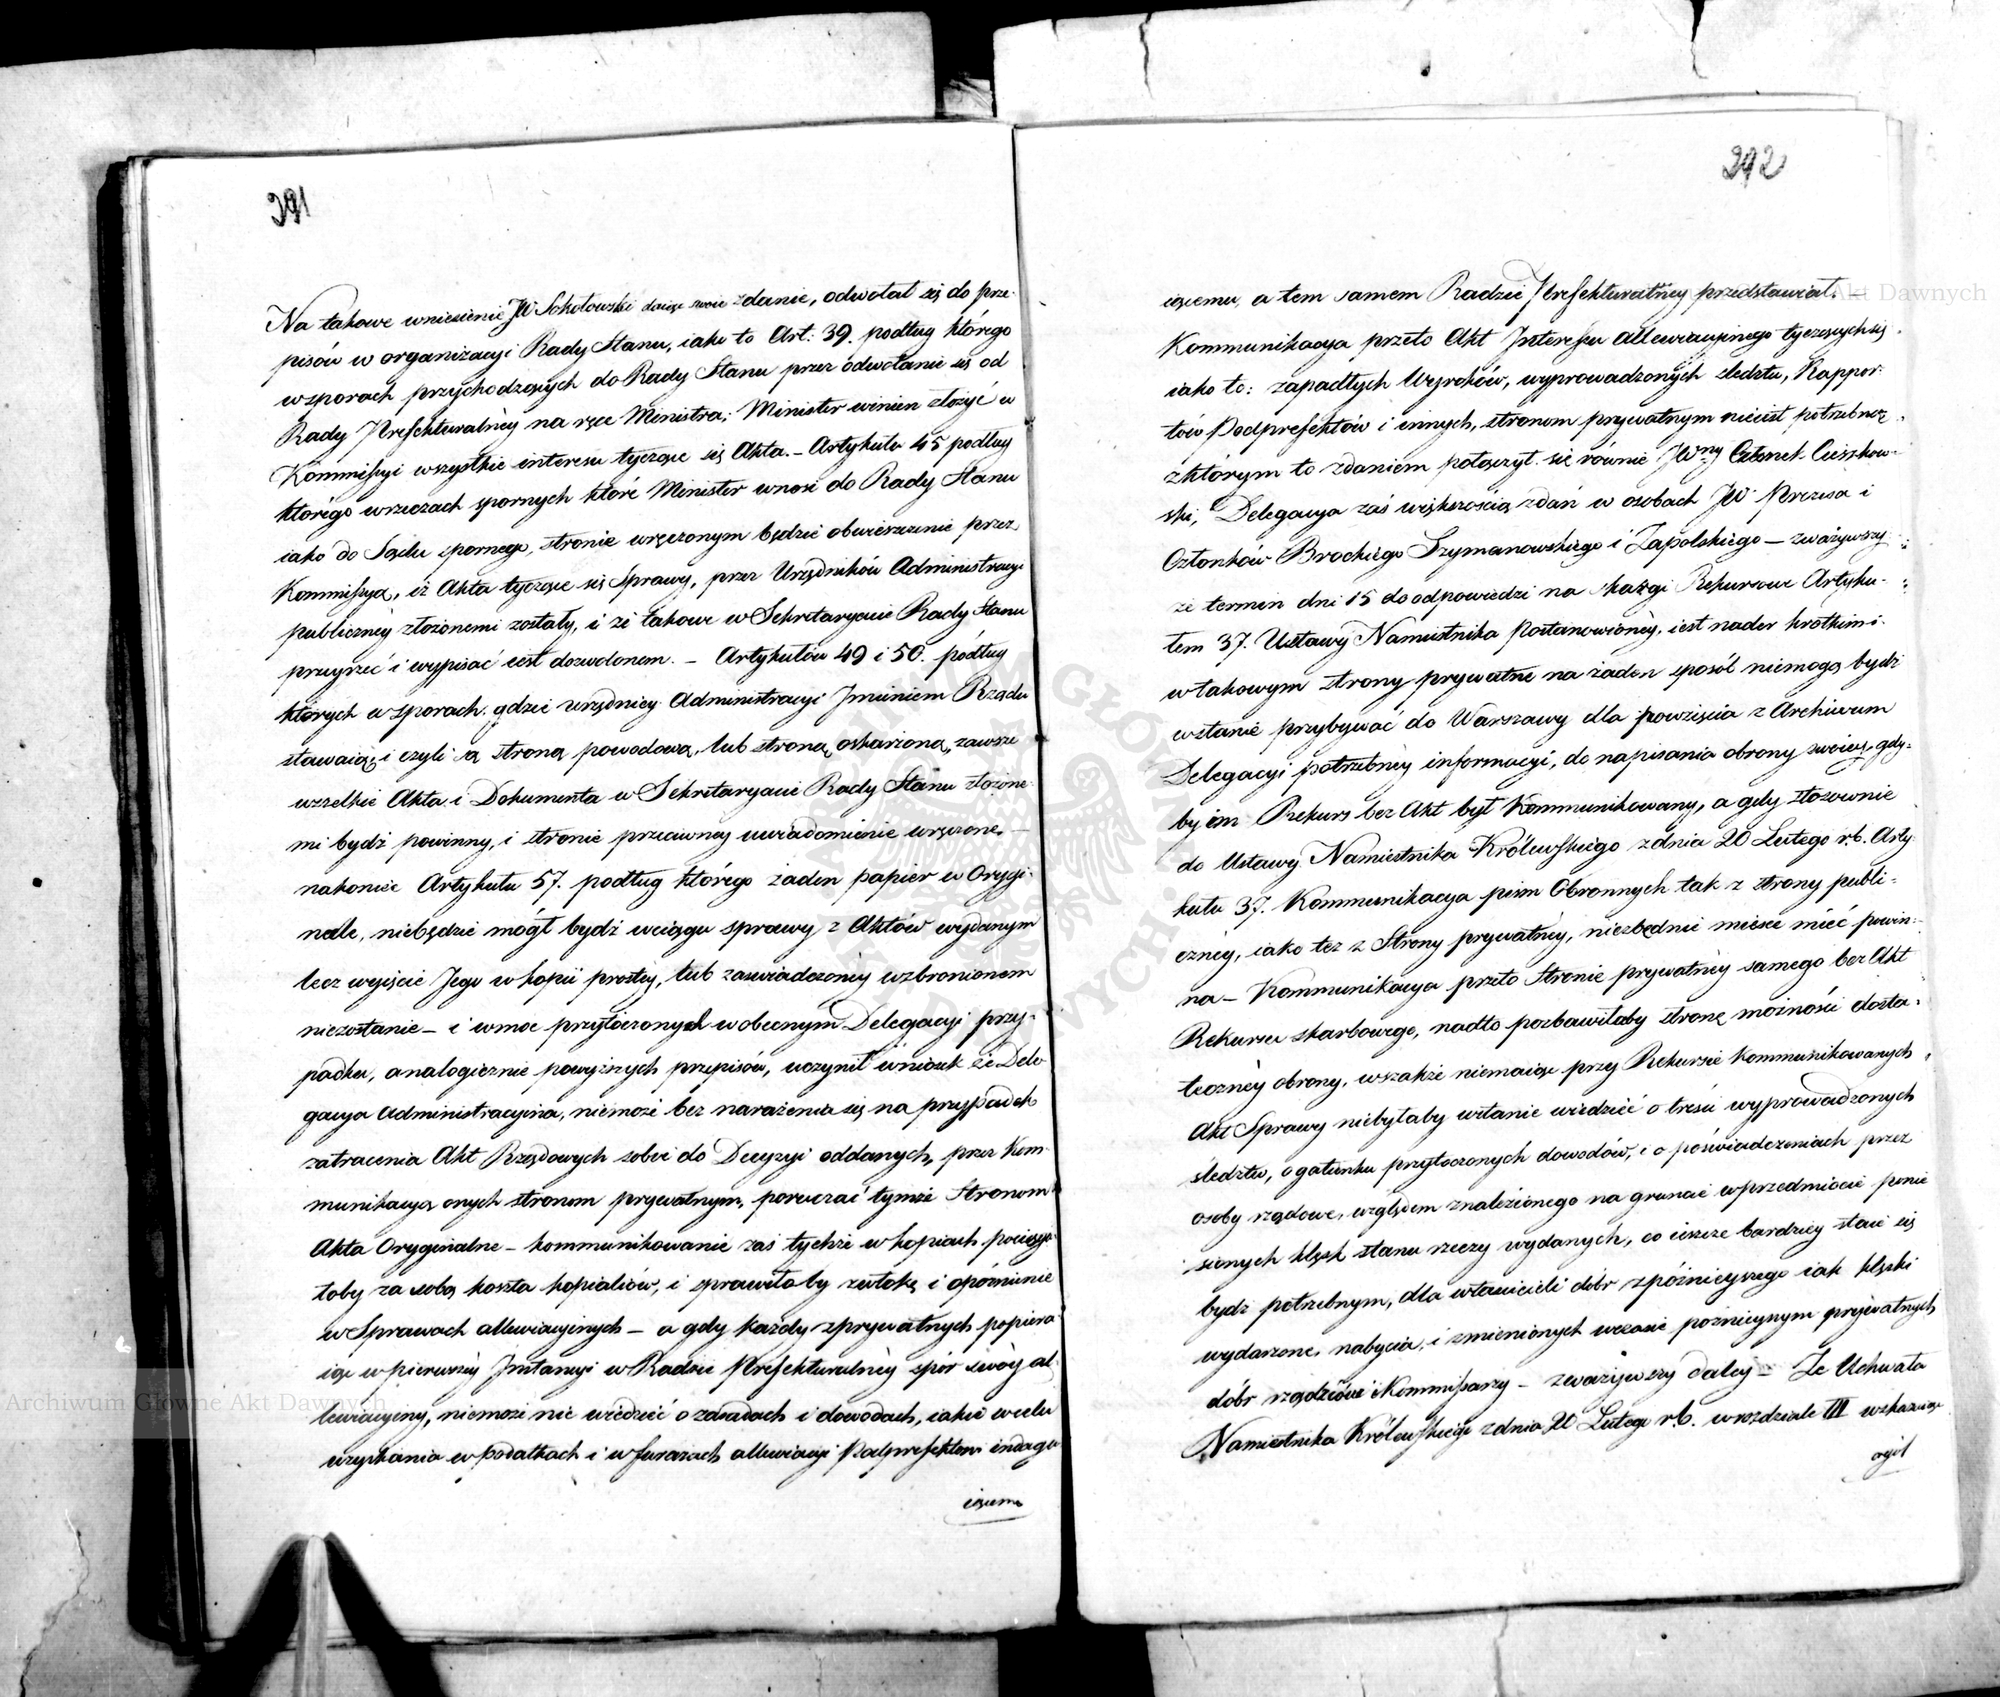 291
Na takowe wniesienie JW Sokołowski daiąc swoie zdanie, odwołał się do prze-
pisów w organizacyi Rady Stanu, iako to Art: 39. podług którego
w sporach przychodzących do Rady Stanu przez odwołanie się od
Rady Prefekturalnèy na ręce Ministra, Minister winien złożyć w
Kommissyi wszystkie interessu tyczące się Akta. – Artykułu 45 podług
którego w rzeczach spornych które Minister wnosi do Rady Stanu
iako do Sądu spornego, stronie wręczonym będzie obwieszczenie przez
Kommissyą, iż Akta tyczące się Sprawy, przez Urzędników Administracyi
publicznèy złożonemi zostały, i że takowe w Sekretaryacie Rady Stanu
przeyrzeć i wypisać iest dozwolonem. – Artykułów 49 i 50. podług
których w sporach gdzie urzędnicy Administracyi Jmieniem Rządu
stawaią, i czyli są stroną powodową, lub stroną oskarżoną, zawsze
wszelkie Akta i Dokumenta w Sekretaryacie Rady Stanu złożone-
mi bydź powinny, i stronie przeciwney uwiadomienie wręczone, –
nakoniec Artykułu 57. podług którego żaden papier w Orygi-
nale, niebędzie mógł bydź wciągu sprawy z Aktów wydanym
lecz wyjście Jego w kopii prostey, lub zaswiadczonèy wzbronionem
niezostanie – i w moc przytoczonych w obecnym Delegacyi przy-
padku, analogicznie powyższych przepisów, uczynił wniosek że Dele-
gacya Administracyina, niemoże bez narażenia się na przypadek
zatracenia Akt Rządowych sobie do Decyzyi oddanych, przez Kom-
munikacyą onych stronom prywatnym, poruczać tymże Stronom
Akta Oryginalne – kommunikowanie zaś tychże w kopiach pociągnę-
łoby za sobą koszta kopialiów, i sprawiłoby zwłokę i opóźnienie
w Sprawach allewiacyinych – a gdy każdy z prywatnych popiera-
iąc w pierwszèy Jnstancyi w Radzie Prefekturalnèy spór swóy al-
lewiacyiny, niemoże nie wiedzieć o zasadach i dowodach, iakie w celu
uzyskania w podatkach i w furażach allewiacyi Podprefektowi indagu-
iącemu
292
iącemu, a tem samem Radzie Prefekturalney przedstawiał. –
Kommunikacya przeto Akt Jnteressu allewiacyinego tyczących się
iako to: zapadłych Wyroków, wyprowadzonych śledztw, Rappor-
tów Podprefektów i innych, stronom prywatnym nieiest potrzebną,
z którym to zdaniem połączył się równie JWny Członek Cieszkow-
ski, Delegacya zaś większością zdań w osobach JW Prezesa i
Członków Brockiego Szymanowskiego i Zapolskiego – zważywszy
że termin dni 15 do odpowiedzi na skargi Rekursowe Artyku-
łem 37. Ustawy Namiestnika Postanowionèy, iest nader krótkim i
w takowym strony prywatne na żaden sposób niemogą bydź
w stanie przybywać do Warszawy dla powzięcia z Archiwum
Delegacyi potrzebnèy informacyi, do napisania obrony swoiey, gdy-
by im Rekurs bez Akt był Kommunikowany, a gdy stosownie
do Ustawy Namiestnika Królewskiego z dnia 20 Lutego r.b. Arty-
kułu 37. Kommunikacya pism Obronnych tak z strony publi-
cznèy, iako też z Strony prywatnèy, niezbędnie mieisce mieć powin-
na – Kommunikacya przeto Stronie prywatnèy samego bez Akt
Rekursu skarbowego, nadto pozbawiłaby stronę możności dosta-
tecznèy obrony, wszakże niemaiąc przy Rekursie kommunikowanych
Akt Sprawy niebyłaby wstanie wiedzieć o treści wyprowadzonych
śledztw, o gatunku przytoczonych dowodów, i o poświadczeniach przez
osoby rządowe, względem znalezionego na gruncie w przedmiocie ponie-
sionych klęsk stanu rzeczy wydanych, co ieszcze bardziey staie się
bydź potrzebnym, dla właścicieli dóbr z późnieyszego iak klęski
wydarzone, nabycia, i zmienionych w czasie poźnieyszym prywatnych
dóbr rządców i Kommissarzy – zważywszy daley – Że Uchwała
Namiestnika Królewskiego z dnia 20 Lutego r.b. w rozdziale III wskazuiąc
ogół
Archiwum Główne Akt Dawnych